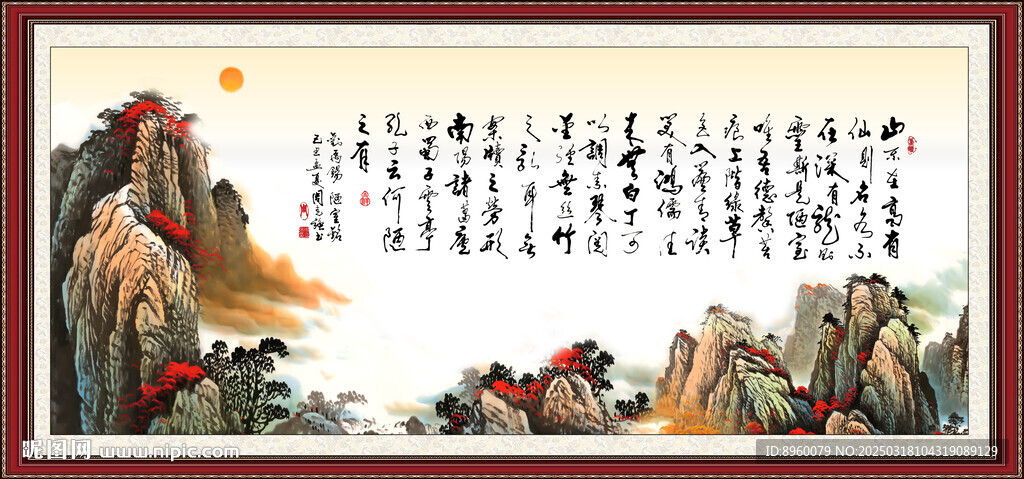 山不在高有
仙則名水不
在深有龍則
靈斯是陋室
唯吾德馨苔
痕上階綠草
色入簾青談
笑有鴻儒往
來無白丁可
以調素琴閱
金經無絲竹
之亂耳無
案牘之勞形
南陽諸葛廬
西蜀子雲亭
孔子云何陋
之有
劉禹錫 陋室銘
己丑孟夏周書
昵图网 www.nipic.com
ID:8960079 NO:20250318104319089129